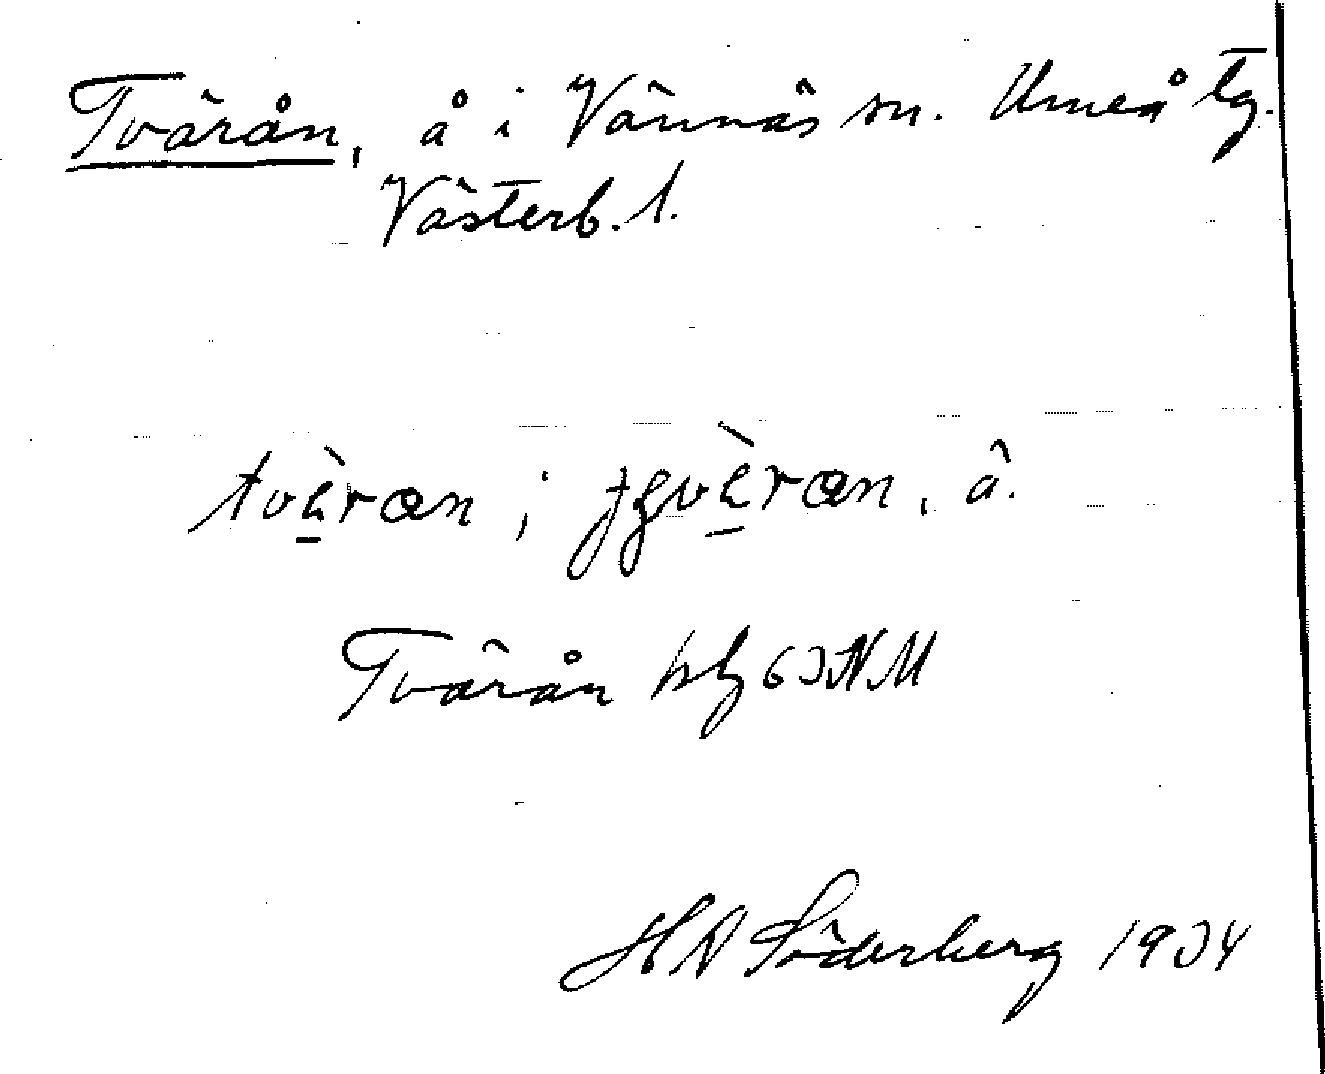 Tvärån, å i Vännäs sn. Umeå tg.
Västerb. l.
tvè̱ran ; ɟʒvè̱ran, å.
Tvärån hlj 63 NM
HN Söderberg 1934